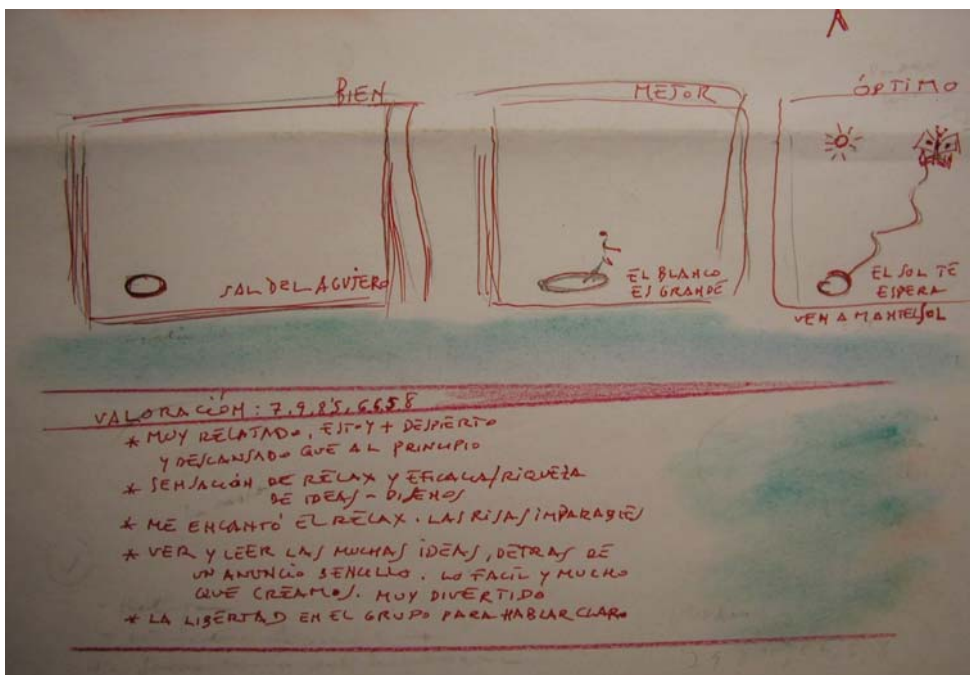 BIEN
SAL DEL AGUJERO
MEJOR
EL BLANCO
ES GRANDE
ÓPTIMO
EL SOL TE
ESPERA
VEN A MANTELSOL
VALORACIÓN: 7,9,8'5,6,6'5,8
* MUY RELATADO, ESTOY + DESPIERTO
Y DESCANSADO QUE AL PRINCIPIO
* SENSACIÓN DE RELAX Y EFICACIA/RIQUEZA
DE IDEAS - DISEÑOS
* ME ENCANTÓ EL RELAX. LAS RISAS IMPARABLES
* VER Y LEER LAS MUCHAS IDEAS, DETRAS DE
UN ANUNCIO SENCILLO. LO FACIL Y MUCHO
QUE CREAMOS. MUY DIVERTIDO
* LA LIBERTAD EN EL GRUPO PARA HABLAR CLARO